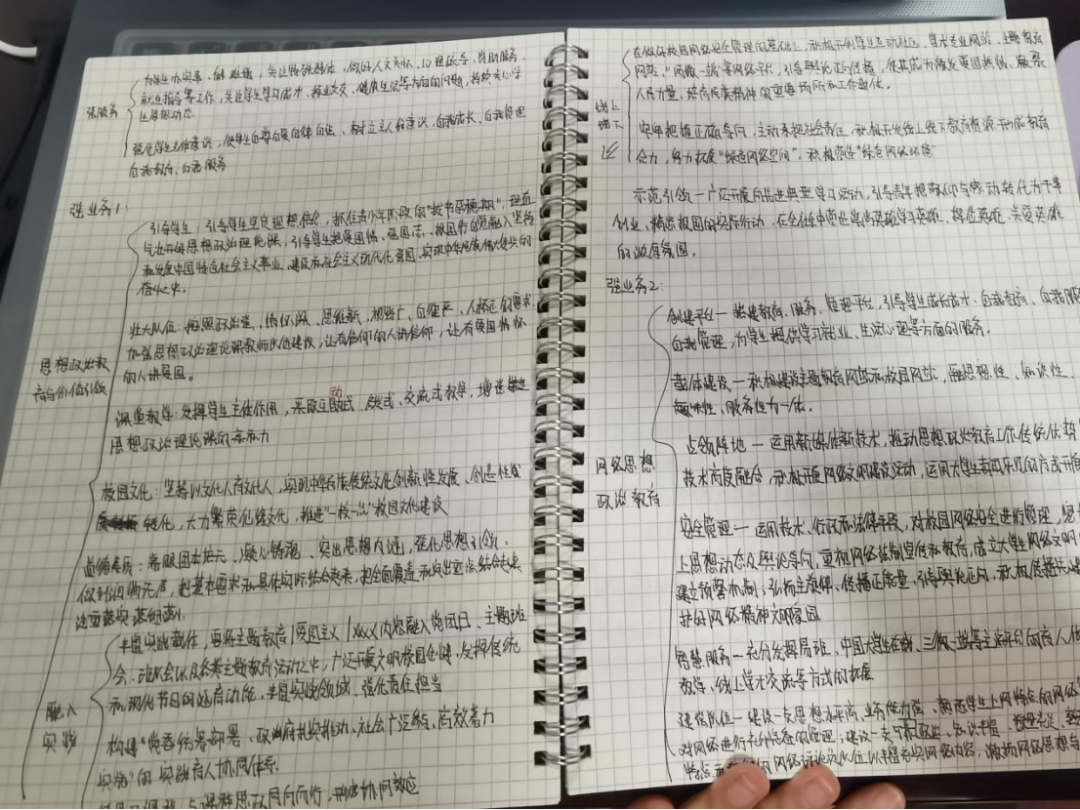 为学生办实事、解难题，关注特殊群体，做好人文关怀、心理疏导、资助服务、
就业指导等工作，关注学生学习成才、择业交友、健康生活等方面的问题，持续关心学
生思想动态
强服务
强化学生主体意识，使学生自尊自爱自律自强，树立主人翁意识，自我成长、自我管理
自我教育、自我服务
强业务1:
引导学生，引导学生坚定理想信念，抓住青少年阶段的"拔节孕穗期"，理直
气壮开好思想政治理论课，引导学生把爱国情、强国志、报国行自觉融入坚持
和发展中国特色社会主义事业，建设社会主义现代化强国，实现中华民族伟大复兴的
奋斗之中。
壮大队伍: 按照政治强、情怀深、思维新、视野广、自律严、人格正的要求
加强思想政治理论课教师队伍建设，让有信仰的人讲信仰，让有爱国情怀
的人讲爱国。
思想政治教
育与价值引领
动
课堂教学: 发挥学生主体作用，采取互助式、启发式、交流式教学，增强
思想政治理论课的亲和力
校园文化: 坚持以文化人育文化人，实现中华传统文化创新性发展、创造性
转化，大力繁荣 文化，推进"一校一品"校园文化建设
道德素质: 着眼固本培元、凝心铸魂、突出思想内涵，强化思想引领，
做到润物无声，把基本要求和具体实际结合起来，把全面覆盖和突出重点结合起来
注重落实落细落小
融入
实践
丰富实践载体，要将主题教育/爱国主义/XXXX内容融入党团日、主题班
会、班级会以及各类主题教育活动之中，广泛开展文明校园创建，发挥传统
和现代节日的涵育功能，丰富实践领域，强化责任担当
构建"党委统筹部署、政府扎实推动、社会广泛参与、高效着力
实施"的实践育人协同体系
与课程思政同向而行，形成协同效应
在做好校园网络安全管理的基础上，积极开创学生互动社区，学术专业网站，主题教育
网站，"两微一端"等网络平台，引导舆论正向传播，使其成为激发爱国热情、凝聚
人民力量、培育民族精神的重要场所和工作载体。
线上
线下
牢牢把握正确导向，主动承担社会责任，积极开发线上线下教育资源形成教育
合力，努力拓展"绿色网络空间"，积极营造"绿色网络环境"
示范引领 — 广泛开展向先进典型学习活动，引导青年把敬仰与感动转化为干事
创业、精忠报国的实际行动，在全社会中营造崇尚英雄学习英雄、捍卫英雄、关爱英雄
的浓厚氛围。
强业务2:
创建平台 — 搭建教育、服务、管理平台，引导学生成长成才、自我教育、自我服
自我管理，为学生提供学习就业、生活心理等方面的服务。
载体建设 — 积极建设主题教育网站和校园网站，融思想性、知识性、
趣味性、服务性为一体。
网络思想
政治教育
占领阵地 — 运用新媒体新技术，推动思想政治教育工作传统优势
技术高度融合，积极开展网络文明建设活动，运用大学生喜闻乐见的方式开展
安全管理 — 运用技术、行政和法律手段，对校园网络安全进行管理，
上思想动态及舆论导向，重视网络法制宣传和教育，成立大学生网络文明
建立预警机制; 弘扬主旋律、传播正能量，引导舆论正向，积极传播
护好网络精神文明家园
智慧服务 — 充分发挥易班、中国大学生在线、三微一端等主流平台的育人
教学、线上学术交流等方式的拓展
建强队伍 — 建设一支思想水平高、业务能力强、熟悉学生上网特点的网络
对网络进行充分检查的管理; 建设一支 、知识丰富、
网络评论员队伍以丰富充实网络内容，激扬网络思想